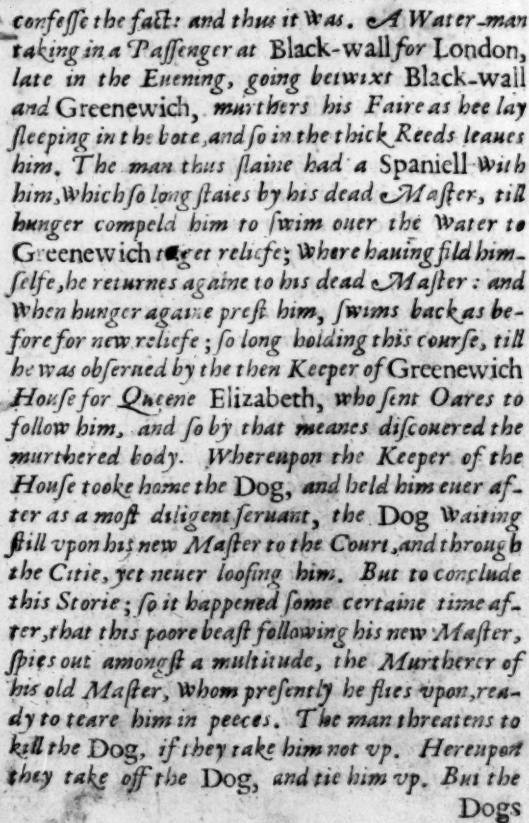 confeſſe the fact: and thus it was. A Water-man
taking in a Paſſenger at Black-wall for London,
late in the Euening, going betwixt Black-wall
and Greenewich, murthers his Faire as hee lay
ſleeping in the bote, and ſo in the thick Reeds leaues
him. The man thus ſlaine had a Spaniell with
him, which ſo long ſtaies by his dead Maſter, till
hunger compeld him to ſwim ouer the Water to
Greenewich to get reliefe; where hauing fild him-
ſelfe, he returnes againe to his dead Maſter: and
when hunger againe preſt him, ſwims back as be-
fore for new reliefe; ſo long holding this courſe, till
he was obſerued by the then Keeper of Greenewich
Houſe for Queene Elizabeth, who ſent Oares to
follow him, and ſo by that meanes diſcouered the
murthered body. Whereupon the Keeper of the
Houſe tooke home the Dog, and held him euer af-
ter as a moſt diligent ſeruant, the Dog waiting
ſtill vpon his new Maſter to the Court, and through
the Citie, yet neuer looſing him. But to conclude
this Storie; ſo it happened ſome certaine time af-
ter, that this poore beaſt following his new Maſter,
ſpies out amongſt a multitude, the Murtherer of
his old Maſter, whom preſently he flies vpon, rea-
dy to teare him in peeces. The man threatens to
kill the Dog, if they take him not vp. Hereupon
they take off the Dog, and tie him vp. But the
Dogs